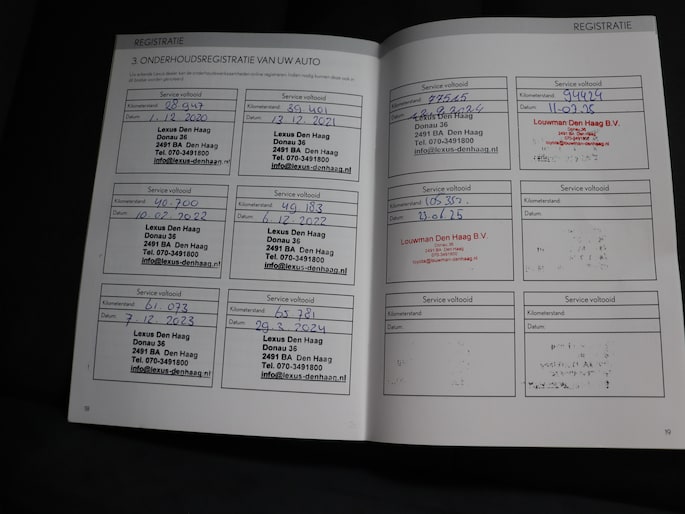 REGISTRATIE
3. ONDERHOUDSREGISTRATIE VAN UW AUTO
Service voltooid
Kilometerstand: 28 947
Datum: 1.12.2020
Lexus Den Haag
Donau 36
2491 BA Den Haag
Tel. 070-3491800
info@lexus-denhaag.nl
Service voltooid
Kilometerstand: 39 401
Datum: 13.12.2021
Lexus Den Haag
Donau 36
2491 BA Den Haag
Tel. 070-3491800
info@lexus-denhaag.nl
Service voltooid
Kilometerstand: 40.700
Datum: 10.02.2022
Lexus Den Haag
Donau 36
2491 BA Den Haag
Tel. 070-3491800
info@lexus-denhaag.nl
Service voltooid
Kilometerstand: 49 183
Datum: 6.12.2022
Lexus Den Haag
Donau 36
2491 BA Den Haag
Tel. 070-3491800
info@lexus-denhaag.nl
Service voltooid
Kilometerstand: 61.073
Datum: 7.12.2023
Lexus Den Haag
Donau 36
2491 BA Den Haag
Tel. 070-3491800
info@lexus-denhaag.nl
Service voltooid
Kilometerstand: 65 781
Datum: 29.3.2024
Lexus Den Haag
Donau 36
2491 BA Den Haag
Tel. 070-3491800
info@lexus-denhaag.nl
18
REGISTRATIE
Service voltooid
Kilometerstand: 77515
Datum: 9.2024
Lexus Den Haag
Donau 36
2491 BA Den Haag
Tel. 070-3491800
info@lexus-denhaag.nl
Service voltooid
Kilometerstand: 94424
Datum:
Louwman Den Haag B.V.
Donau 36
2491 BA Den Haag
070-3491800
Service voltooid
Kilometerstand: 105 352.
Datum: 23.06.25
Louwman Den Haag B.V.
Donau 36
2491 BA Den Haag
070-3491800
Service voltooid
Kilometerstand:
Datum:
Service voltooid
Kilometerstand:
Datum:
Service voltooid
Kilometerstand:
Datum:
19